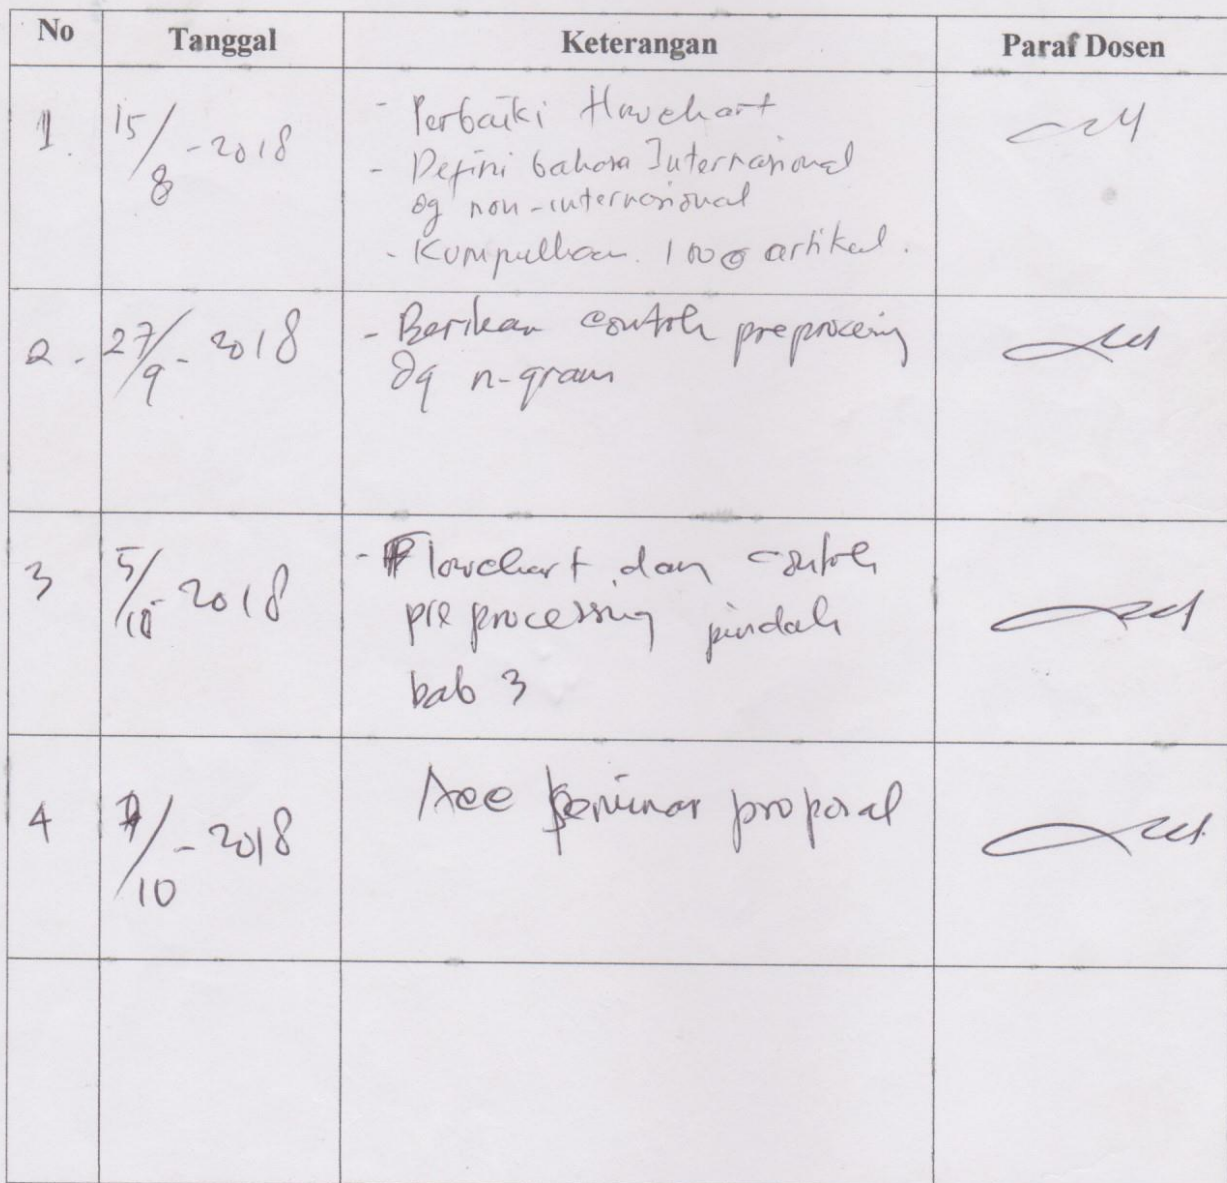 No Tanggal Keterangan Paraf Dosen
1. 15/8-2018 - Perbaiki Flowchart
- Defini bahasa Internasional
dg non-internasional
- Kumpulkan 1000 artikel.
2. 27/9-2018 - Berikan contoh preprocesing
dg n-gram
3 5/10-2018 - Flowchart dan contoh
preprocessing pindah
bab 3
4 /10-2018 Acc seminar proposal